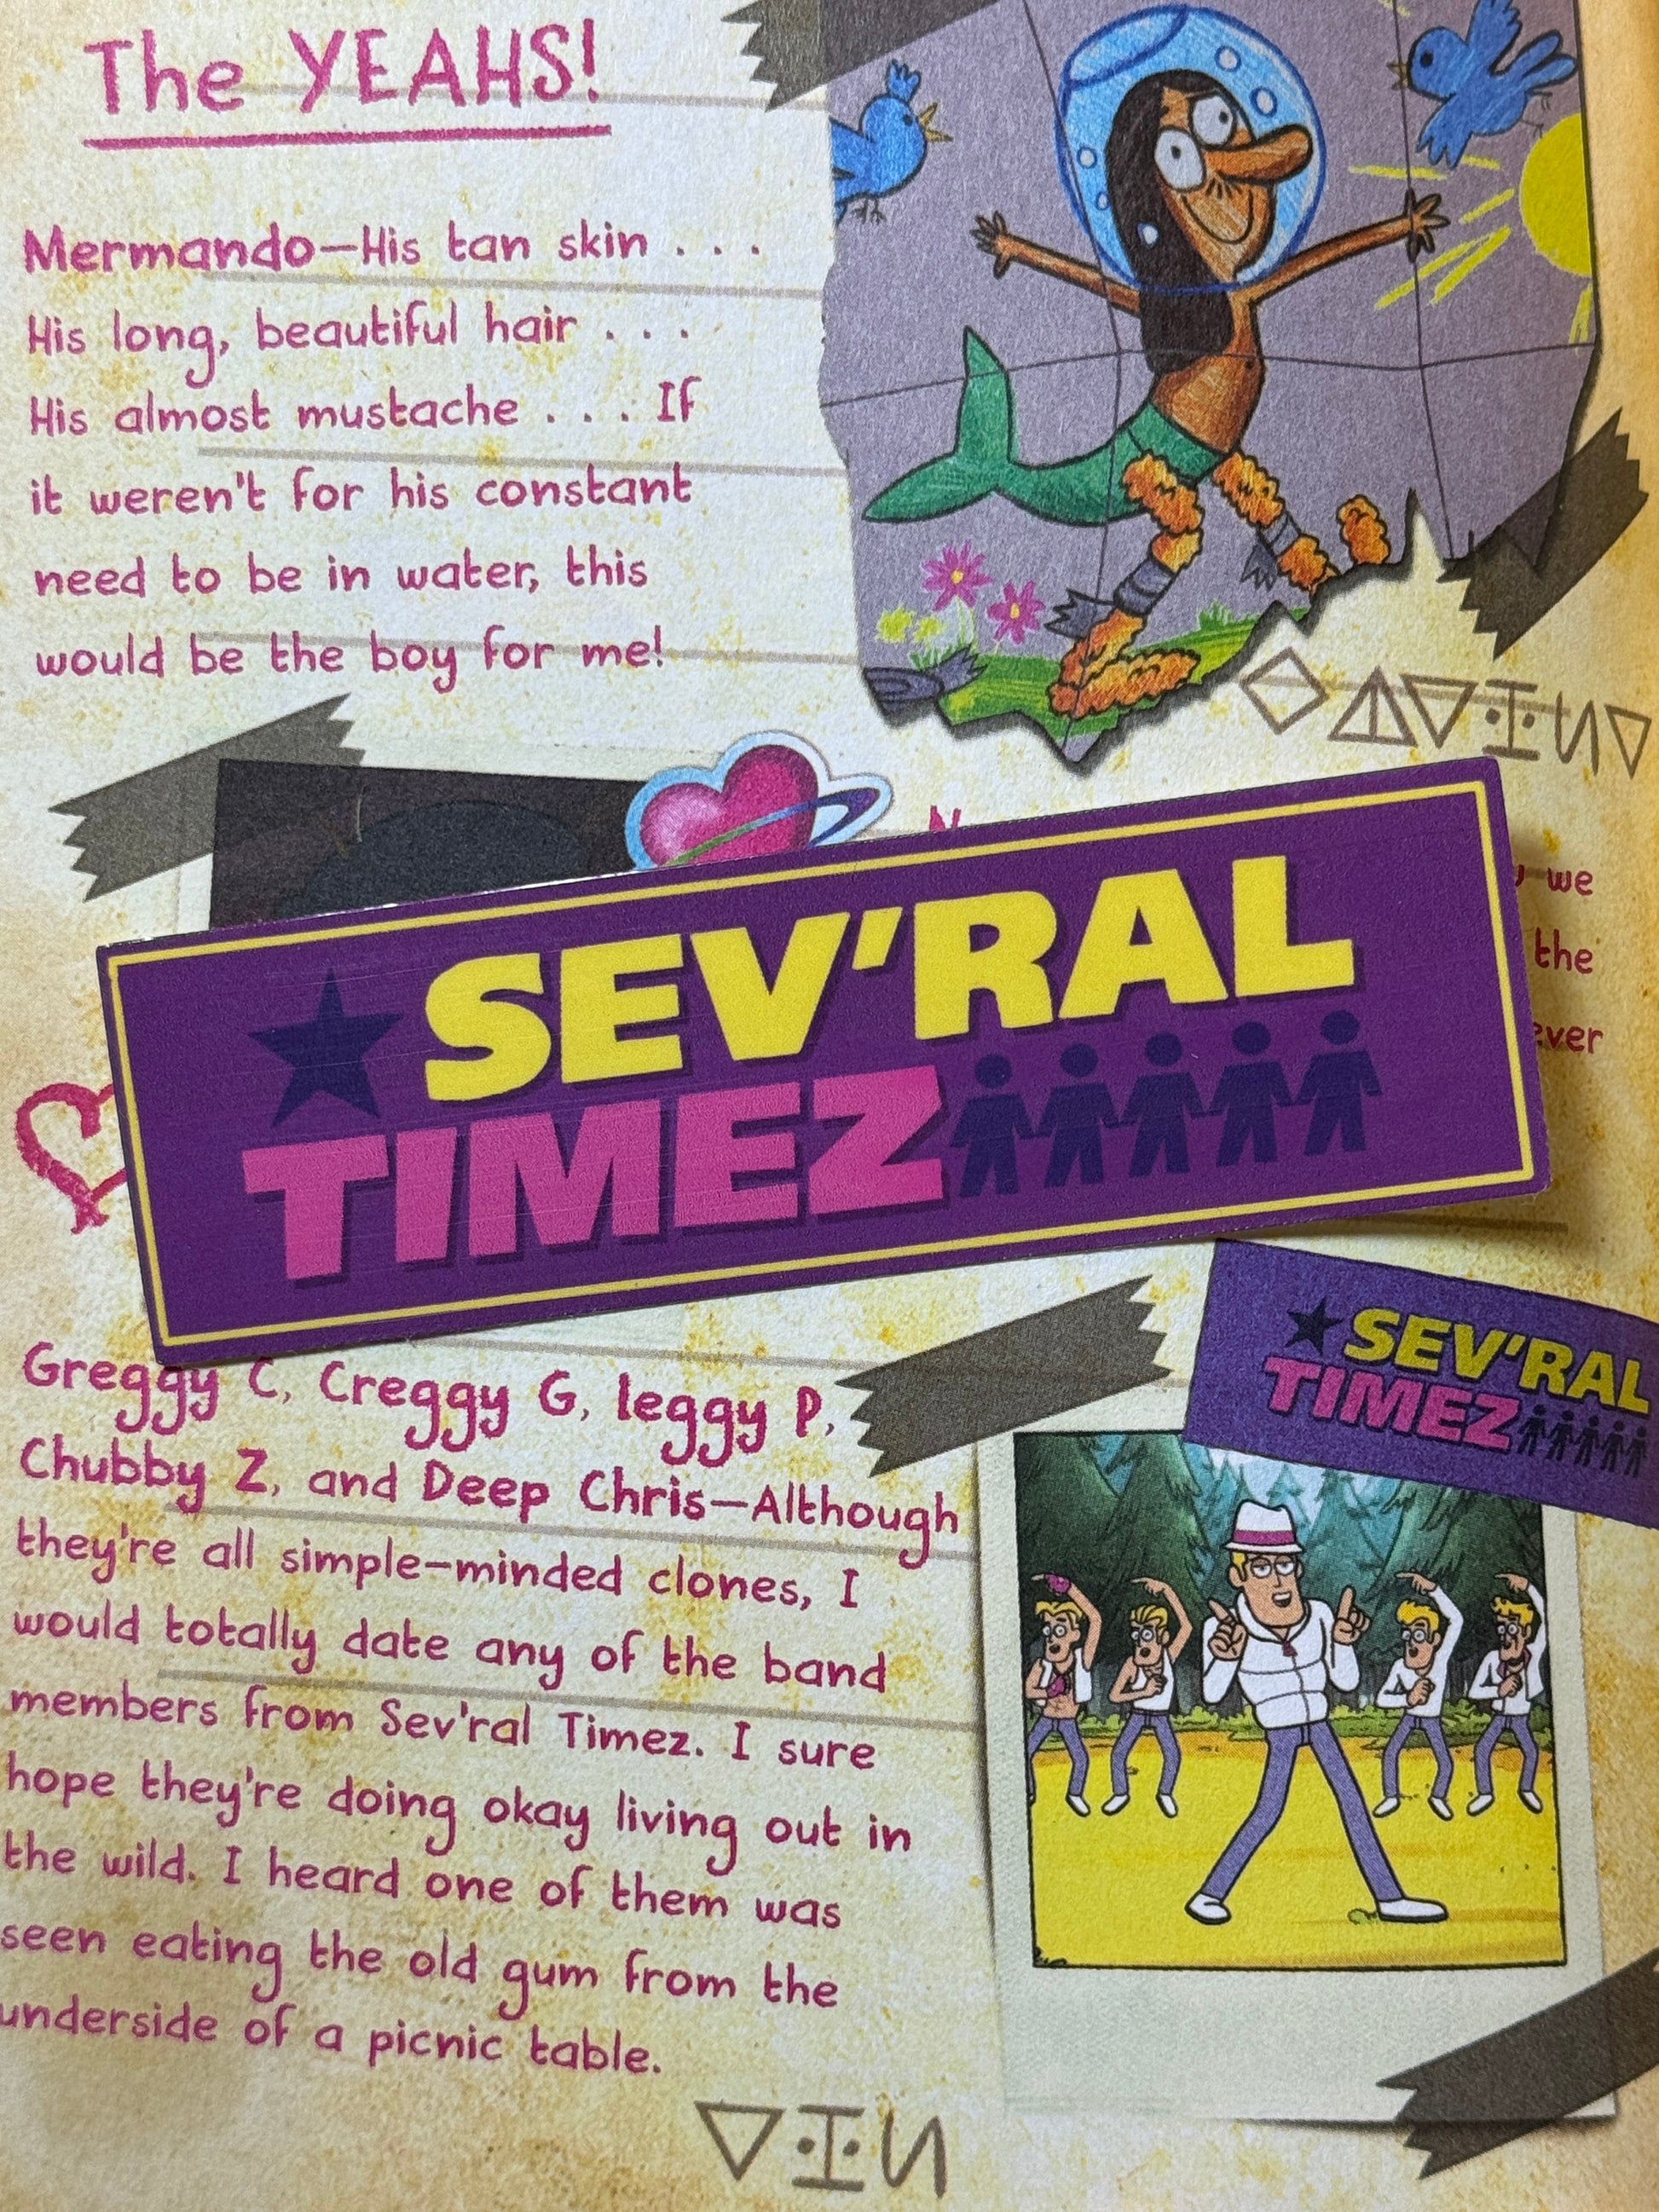 The YEAHS!
Mermando—His tan skin . . .
His long, beautiful hair . . .
His almost mustache . . . If
it weren't for his constant
need to be in water, this
would be the boy for me!
we
the
SEV'RAL
TIMEZ
Greggy C, Creggy G, leggy P,
Chubby Z, and Deep Chris—Although
they're all simple-minded clones, I
would totally date any of the band
members from Sev'ral Timez. I sure
hope they're doing okay living out in
the wild. I heard one of them was
seen eating the old gum from the
underside of a picnic table.
SEV'RAL
TIMEZ